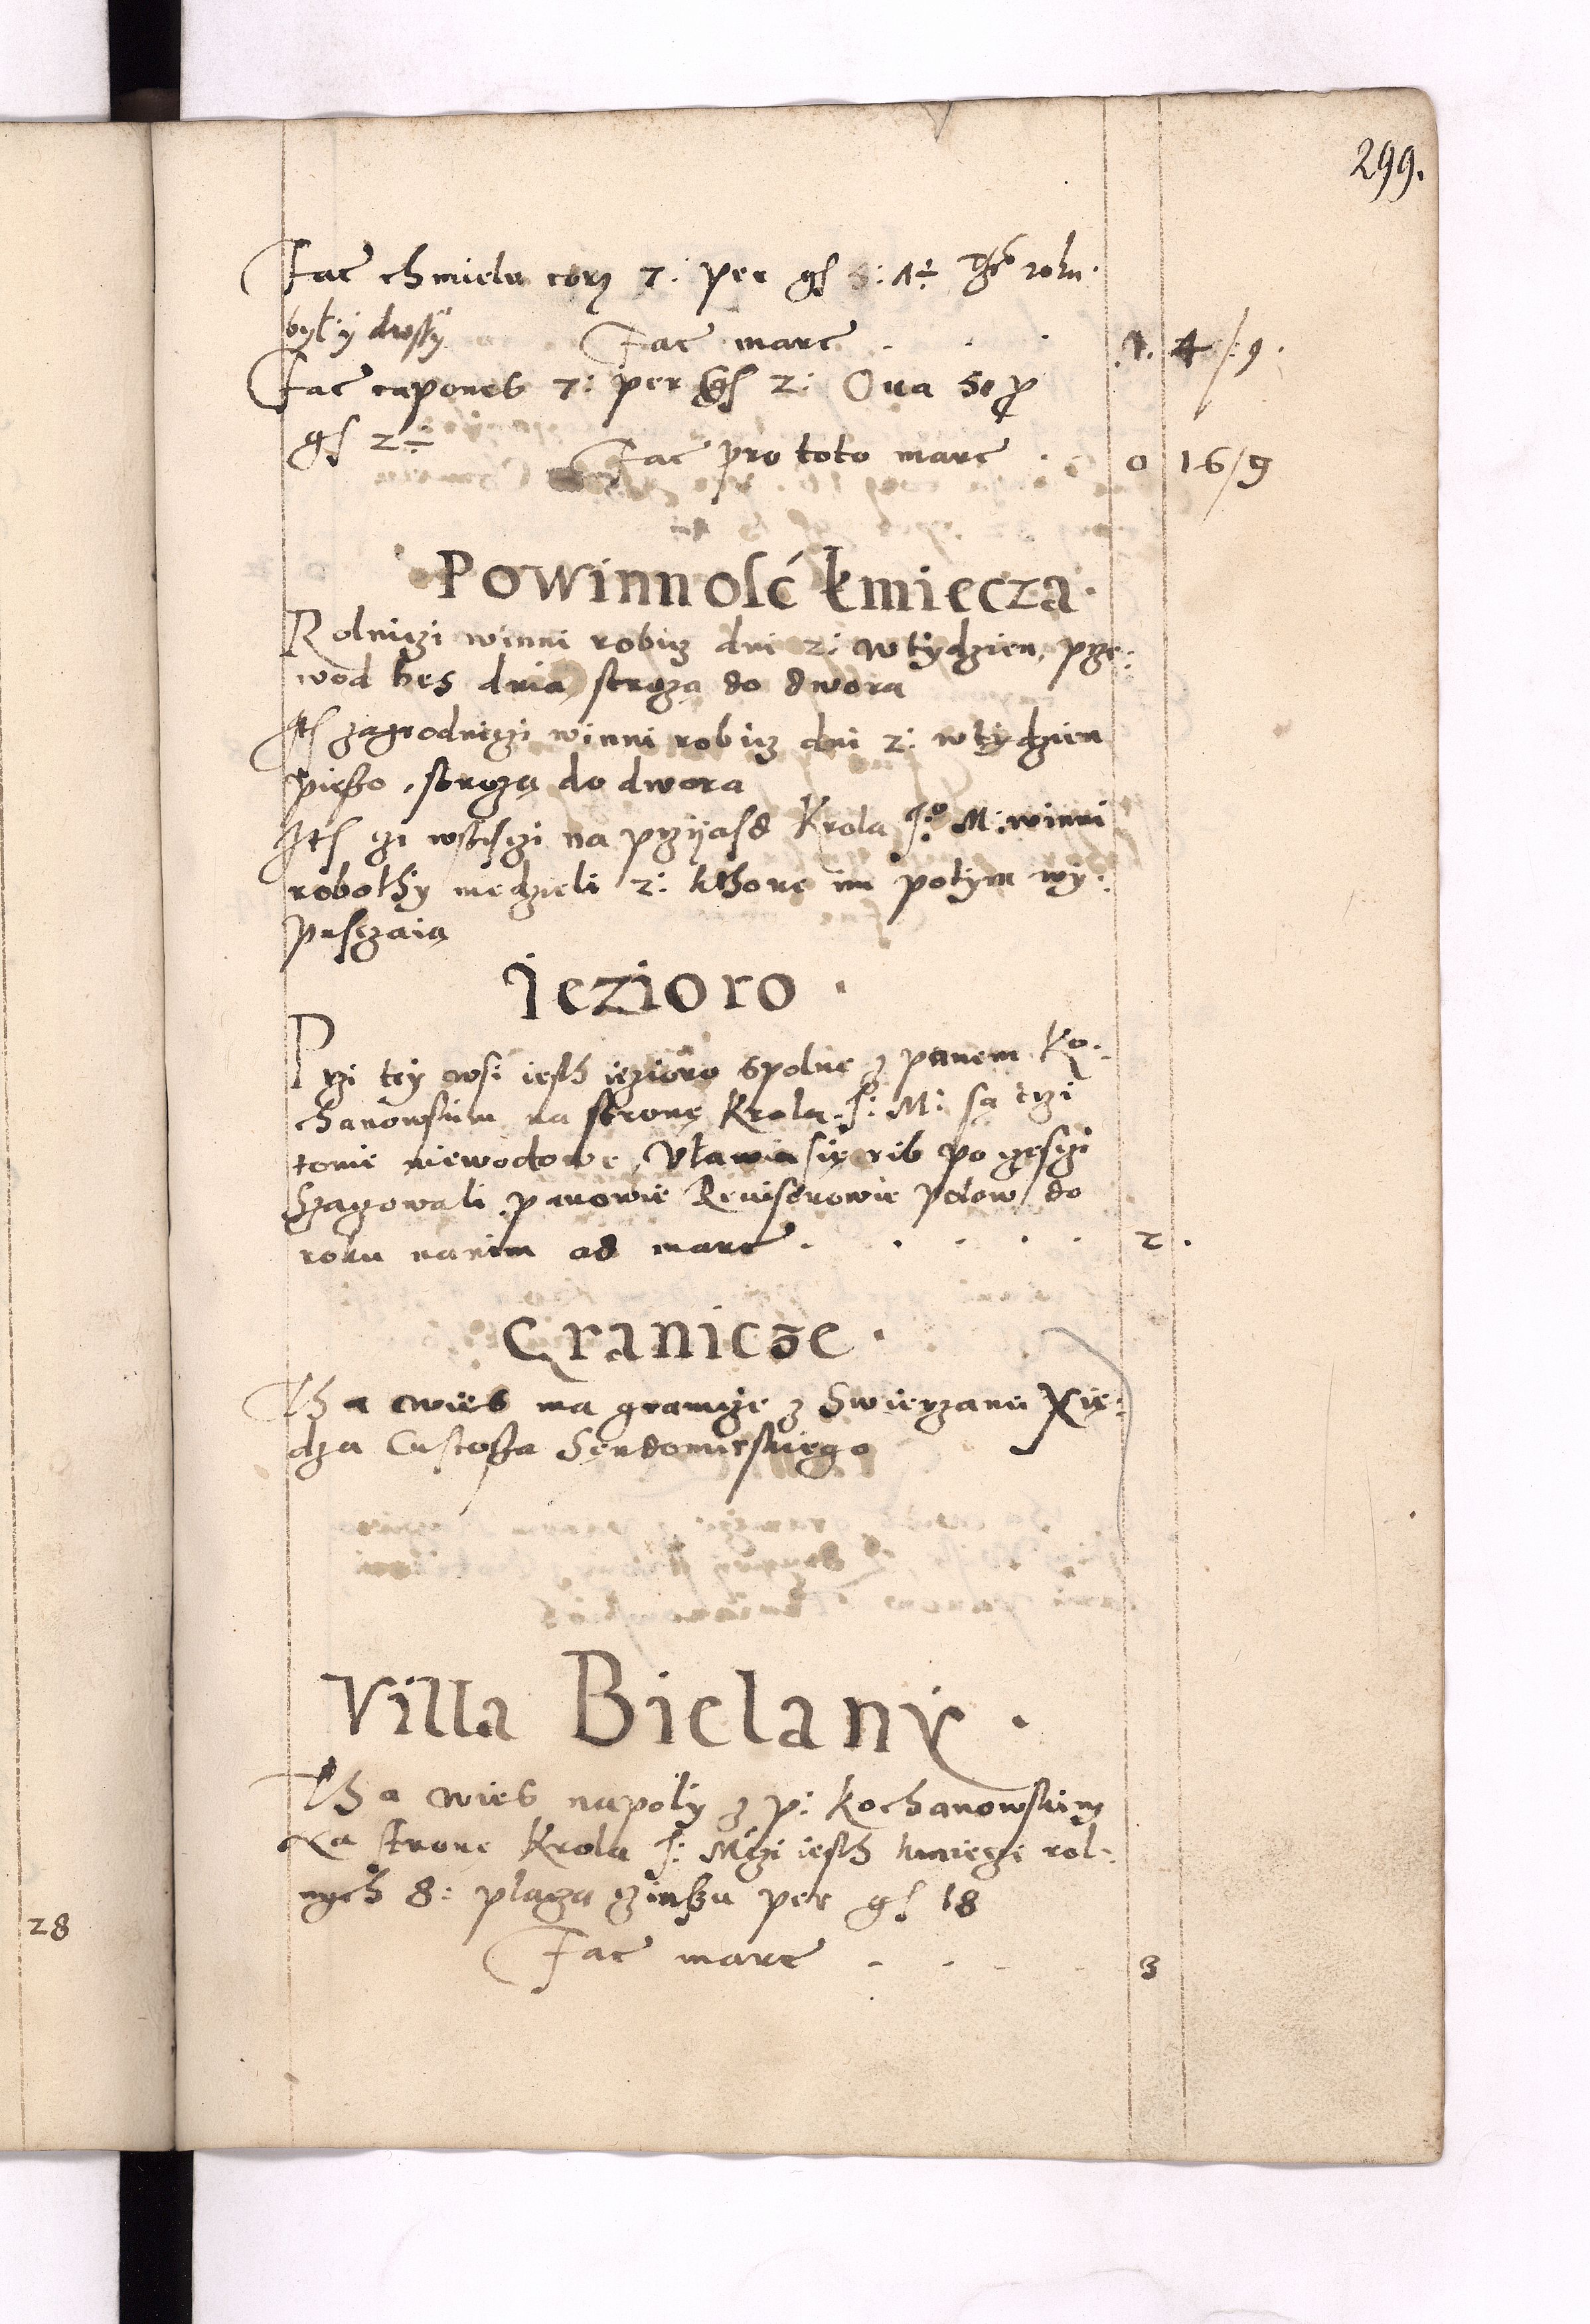 299.
Fac chmielu corz 7: per gs 5: 1÷ roku
był y droszy Fac marc . . . 1. 4/9.
Fac capones 7: per gs 2: Oua 50 p
gs 2÷ Fac pro toto marc . 0 16/9
Powinność kmiecza.
Rolniczi winni robicz dni 2: w tydzien, prze:
wod bes dnia strożą do dwora
Its zagrodniczi winni robicz dni 2: w tydzien
pieszo, strożą do dwora
Its czi wsciszczi na przyiasd Krola J:o M: winni
robothy niedzieli 2: kthore im potym wy:
pusczaią
Jezioro .
Przi tey wsi iesth iezioro spolne z panem Ko:
chanowskim na stronę Krola J: M: są trzi
tonie niewodowe, Vławia się rib po częsczi
Szaczowali panowie Reuisorowie połow do
roku nanim ad marc . . . . . 2 .
Granicze .
Tha wies ma granicze z Swierzami Xię:
dza Custosza Sendomirskiego
Villa Bielany .
Tha wies napoły z p: Kochanowskim
Na stronę Krola J: Mczi iesth kmieczi rol:
nych 8: płacza czinszu per gs 18
Fac marc . . . 3
28